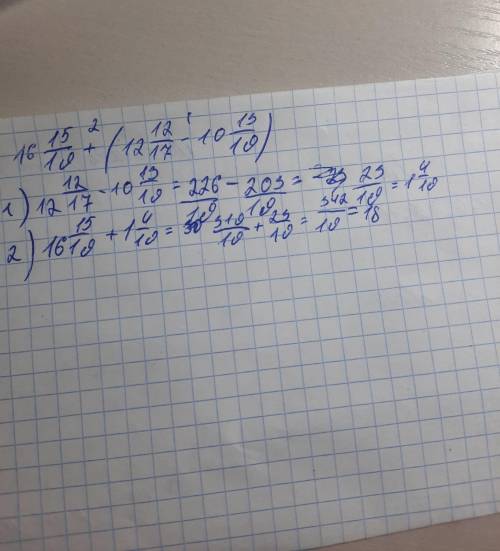 16 15/19 + (12 12/17 - 10 13/19)
1) 12 12/17 - 10 13/19 = 226/19 - 203/19 = 23/19 = 1 4/19
2) 16 15/19 + 1 4/19 = 319/19 + 23/19 = 342/19 = 18